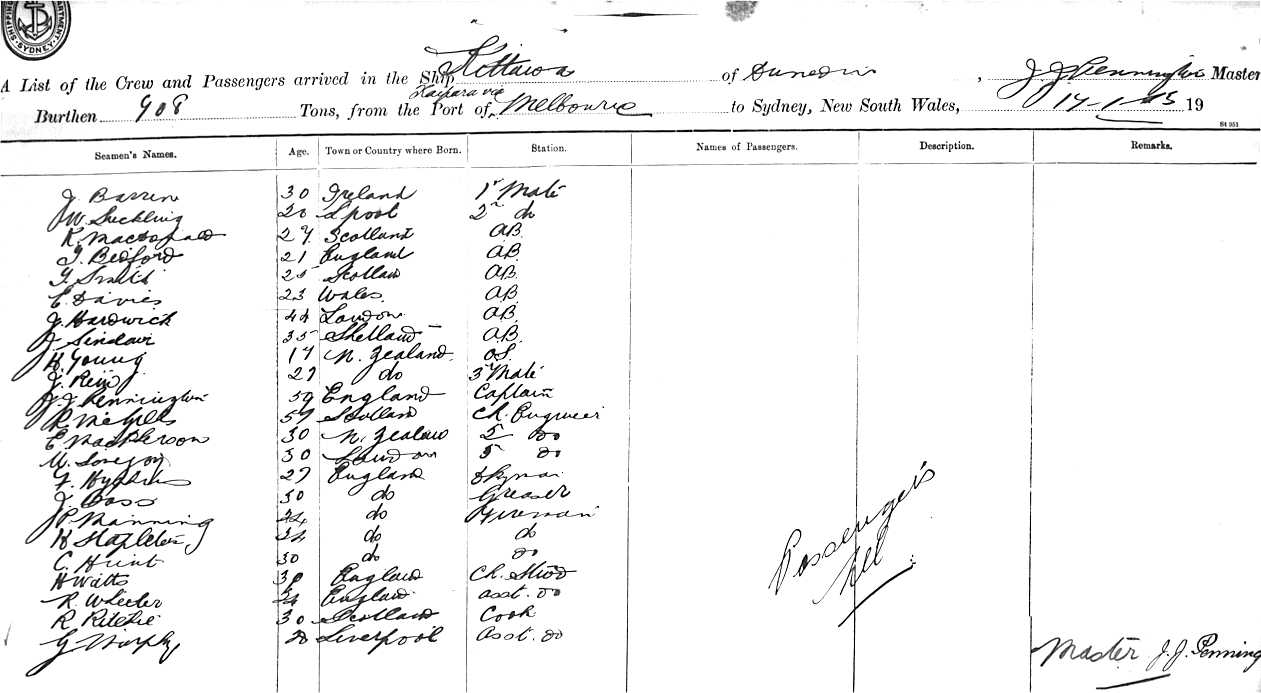 SHIPPING DEPARTMENT SYDNEY
A List of the Crew and Passengers arrived in the Ship Kittawa of Dunedin, J. J. Pennington Master
Kaipara via
Burthen 908 Tons, from the Port of Melbourne to Sydney, New South Wales, 19
St 951
Seamen's Names. Age. Town or Country where Born. Station. Names of Passengers. Description. Remarks.
J. Barren 30 Ireland 1r Mate
J W. Suckling L'pool 2n do
R. Macdonald 27 Scotland AB.
J. Bedford 21 England AB.
Smith 25 AB.
E. Davies 23 Wales. AB
J. Hardwick 44 London AB
J. Sinclair 35 Shetland AB.
H. Young 17 N. Zealand. OS.
J. 27 do 3r Mate
J. J. Pennington 59 England Captain
57 Scotland Ch. Engineer
E. MacPherson 30 N. Zealand 2 do
W. 30 London do
27 England
J. Bass 30 do Greaser
J P. Manning 24 do Fireman
H Stapleton 24 do do
C. Hunt 30 do do
H Watts England Ch. Stwd
R. Wheeler England Asst. do
R Ritchie 30 Scotland Cook
G Murphy Liverpool Asst. do
Passengers
Nil
Master J. J. Penning